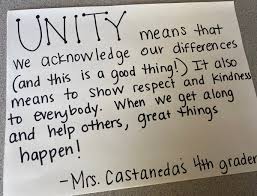 UNITY means that
we acknowledge our differences
(and this is a good thing!) It also
means to show respect and kindness
to everybody. When we get along
and help others, great things
happen!
-Mrs. Castaneda's 4th grader